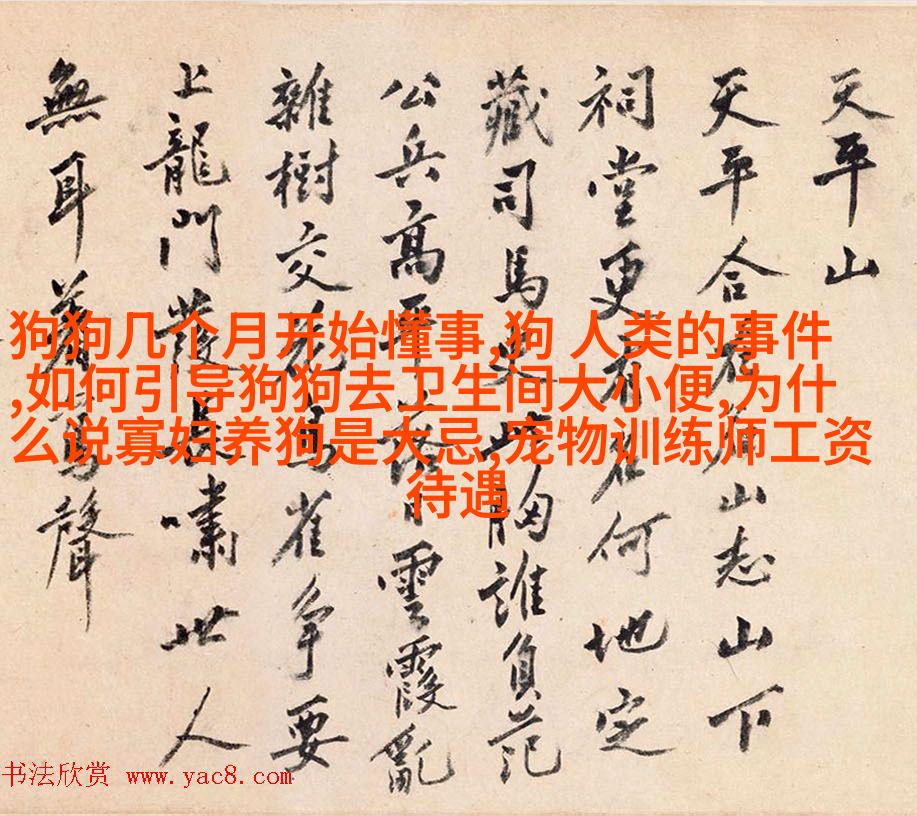 天平山
天平合山志山下
祠堂更有君何地定
藏司馬史胸誰負范
公兵高平日雲霞亂
雜樹交花鳥雀争要
上龍門長嘯世人
無耳聲
狗狗几个月开始懂事,狗 人类的事件
,如何引导狗狗去卫生间大小便,为什
么说寡妇养狗是大忌,宠物训练师工资
待遇
书法欣赏 www.yac8.com